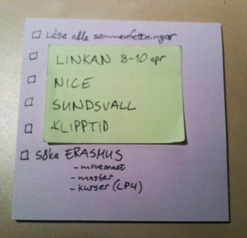 Läsa alla sammanfattningar
LINKAN 8-10 apr
NICE
SUNDSVALL
KLIPPTID
Söka ERASMUS
- movenast
- master
- kurser (LP4)